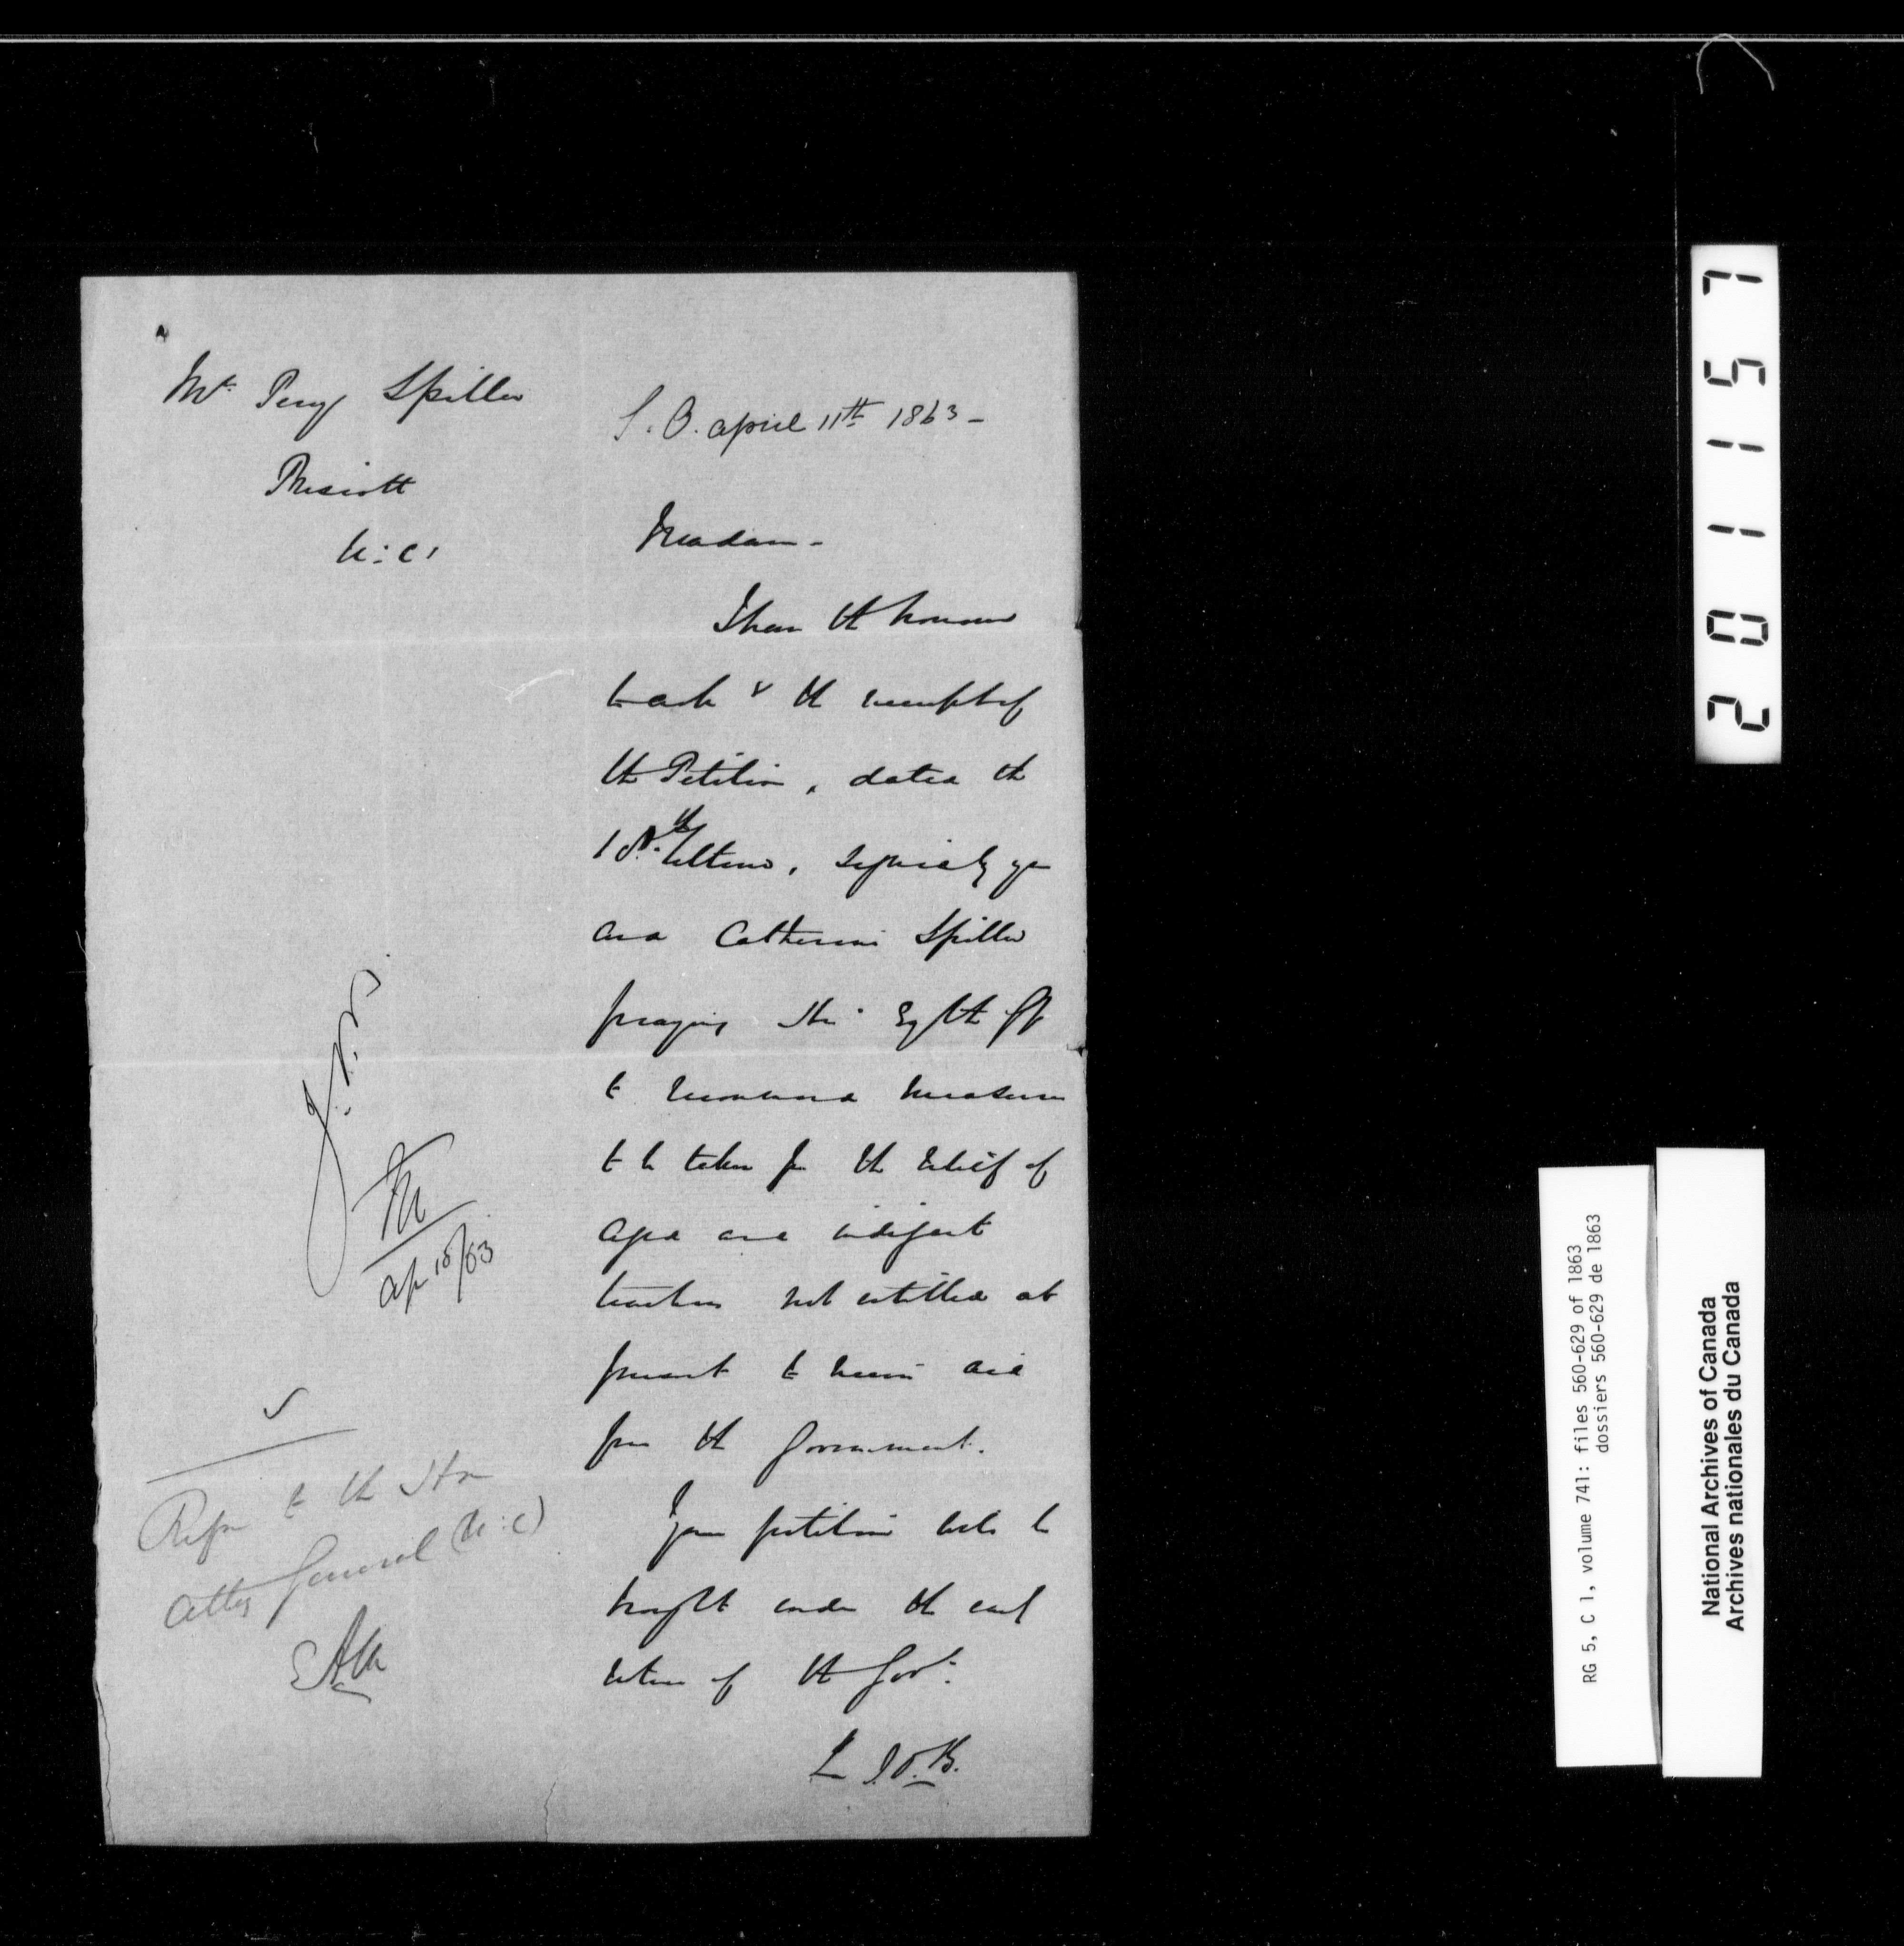 Spiller
Prescott
U.C.
S. O. April 11th 1863 -
Madam -
I have the honour
to ack the receipt of
the Petition, dated the
ultimo, signed by you
and Catherine Spiller
praying His Ex the
to recommend measures
to be taken for the relief of
aged and indigent
teachers not entitled at
present to receive aid
from the Government.
Your petition will be
brought under the
of the Govt.
Ap 18/63
Refer to the Hon
Atty General (U.C)
EAM
201157
RG 5, C 1, volume 741: files 560-629 of 1863
dossiers 560-629 de 1863
National Archives of Canada
Archives nationales du Canada